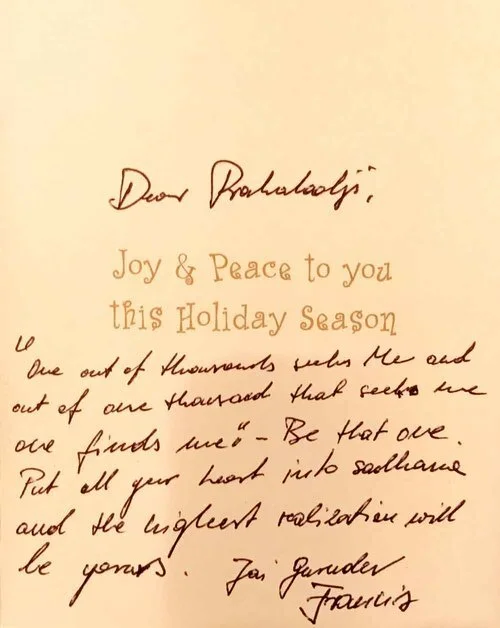 Dear Prahaladji,
Joy & Peace to you
this Holiday Season
"One out of thousands seeks Me and
out of one thousand that seeks me
one finds me" – Be that one.
Put all your heart into sadhana
and the highest realization will
be yours. Jai Gurudev
Francis